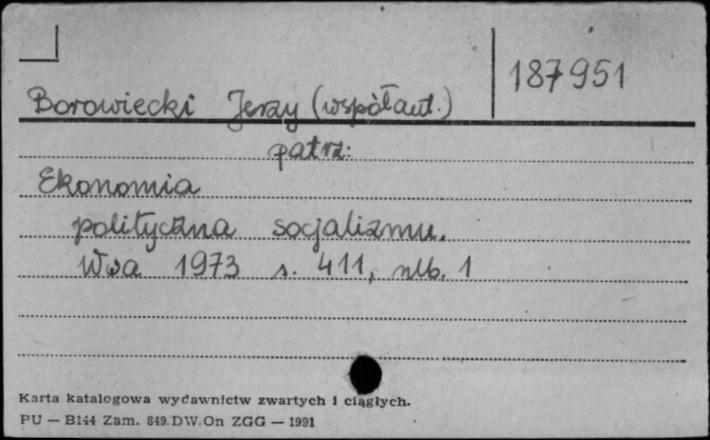 187951
Borowiecki Jerzy (współaut.)
patrz:
Ekonomia
polityczna socjalizmu.
Wwa 1973 s. 411, nlb. 1
Karta katalogowa wydawnictw zwartych i ciągłych.
PU — B144 Zam. 849.DW.On ZGG — 1991